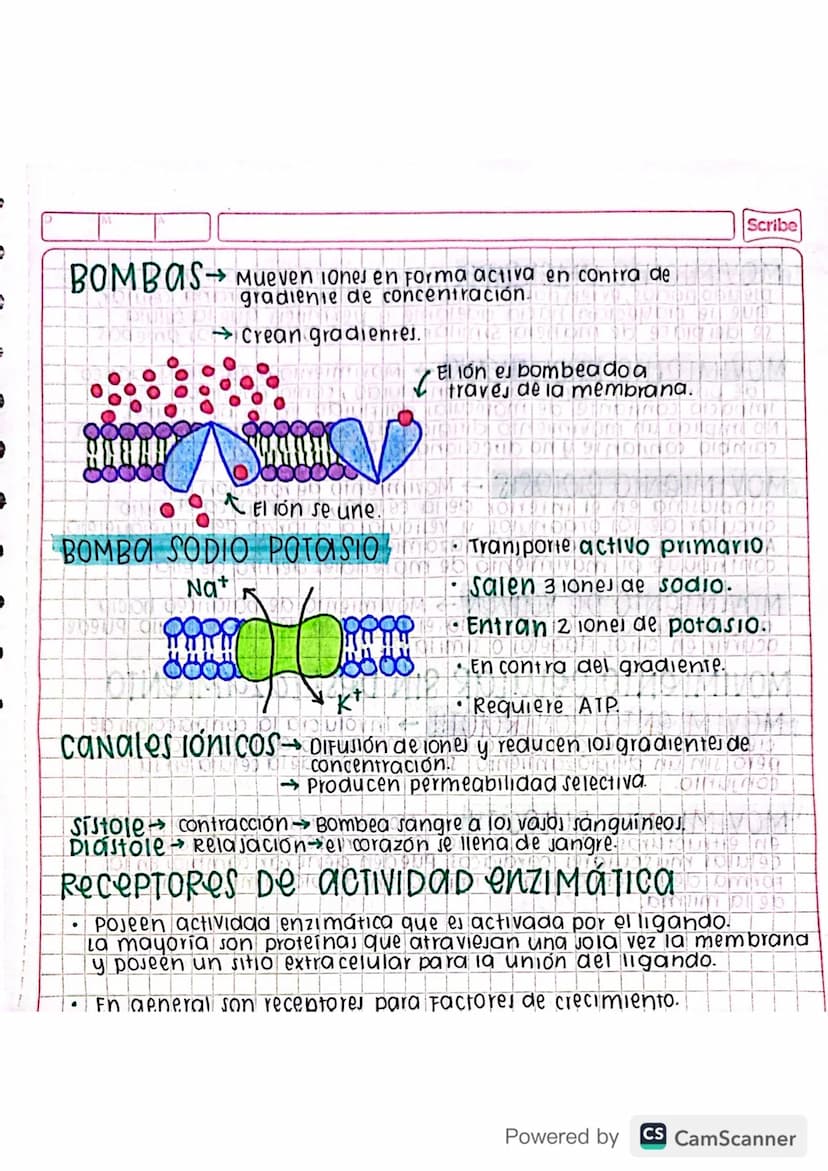 D M A
Scribe
BOMBAS → Mueven iones en forma activa en contra de
gradiente de concentración.
→ Crean gradientes.
El ión es bombeado a
través de la membrana.
El ión se une.
BOMBA SODIO POTASIO
Na+
K+
· Transporte activo primario.
· Salen 3 iones de sodio.
· Entran 2 iones de potasio.
· En contra del gradiente.
· Requiere ATP.
CANALES IÓNICOS → Difusión de iones y reducen los gradientes de
concentración.
→ Producen permeabilidad selectiva.
Sístole → contracción → Bombea sangre a los vasos sanguíneos.
Diástole → Relajación → el corazón se llena de sangre.
RECEPTORES DE ACTIVIDAD ENZIMÁTICA
· Poseen actividad enzimática que es activada por el ligando.
La mayoría son proteínas que atraviesan una sola vez la membrana
y poseen un sitio extracelular para la unión del ligando.
· En general son receptores para factores de crecimiento.
Powered by CS CamScanner